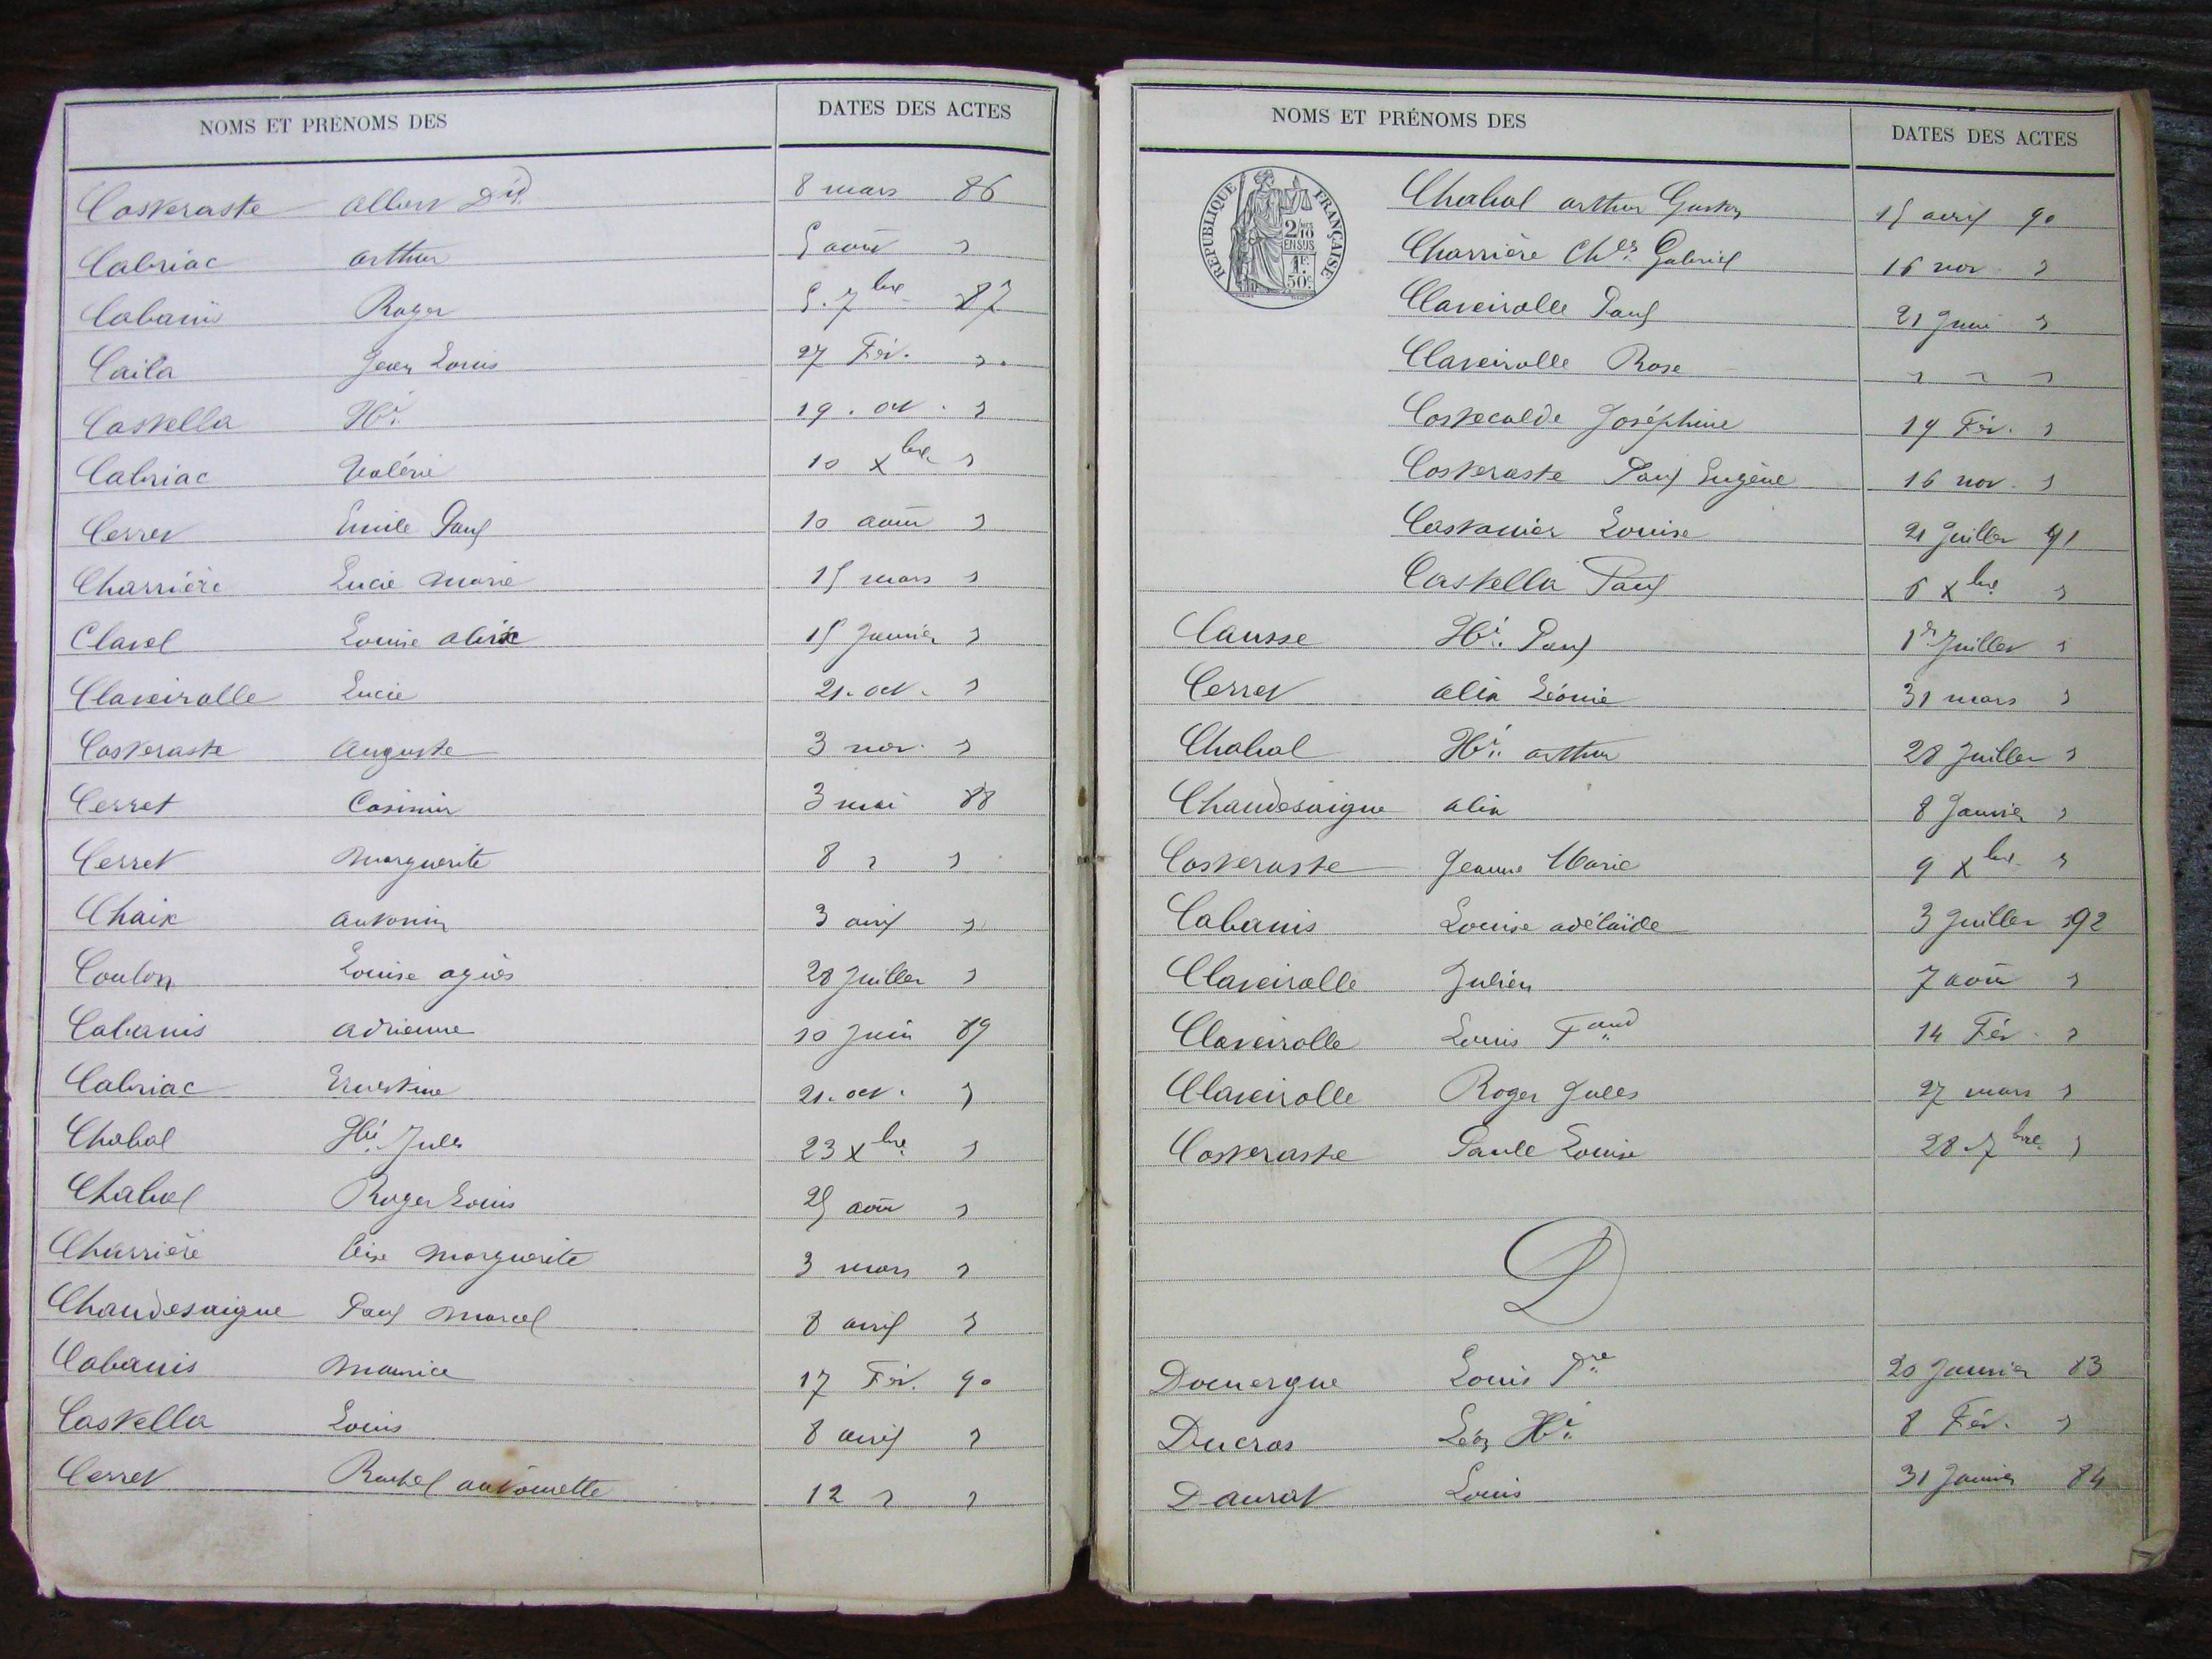 NOMS ET PRÉNOMS DES DATES DES ACTES
Costeraste Albert 8 mars 86
Cabriac Arthur 5 août "
Cabanis Roger 5. 7bre 87
Caila Jean Louis 27 Fév. "
Castella Hri. 19. oct. "
Cabriac Valérie 10 Xbre "
Cerret Emile Paul 10 août "
Charrière Lucie Marie 15 mars "
Clavel Louise Alix 15 Janvier "
Claveirolle Lucie 21. oct. "
Costeraste Auguste 3 nov. "
Cerret Casimir 3 mai 88
Cerret Marguerite 8 " "
Chaix Antonin 3 avril "
Coulon Louise Agnès 28 Juillet "
Cabanis Adrienne 10 Juin 89
Cabriac Ernestine 21. oct. "
Chabal Hri. Jules 23 Xbre "
Chabal Roger Louis 25 août "
Charrière Marguerite 3 mars "
Chaudesaigue Paul Marcel 8 avril "
Cabanis Maurice 17 Fév. 90
Castella Louis 8 avril "
Cerret Rachel Antoinette 12 " "
NOMS ET PRÉNOMS DES DATES DES ACTES
RÉPUBLIQUE FRANÇAISE
2/10
EN SUS
1F.
50c.
Chabal Arthur Gaston 15 avril 90
Charrière Chles Gabriel 16 nov. "
Claveirolle Paul 21 Juin "
Claveirolle Rose " " "
Costecalde Joséphine 19 Fév. "
Costeraste Paul Eugène 16 nov. "
Castanier Louise 21 Juillet 91
Castella Paul 6 Xbre "
Clausse Hri. Paul 1er Juillet "
Cerret Alix Léonie 31 mars "
Chabal Hri. Arthur 28 Juillet "
Chaudesaigue Alix 8 Janvier "
Costeraste Jeanne Marie 9 Xbre "
Cabanis Louise Adélaïde 3 Juillet 92
Claveirolle Julien 7 août "
Claveirolle Louis Fand 14 Fév. "
Claveirolle Roger Jules 27 mars "
Costeraste Paule Louise 28. 7bre "
D
Domergue Louis Pre 20 Janvier 83
Ducros Léon Hri. 8 Fév. "
Daurat Louis 31 Janvier 84